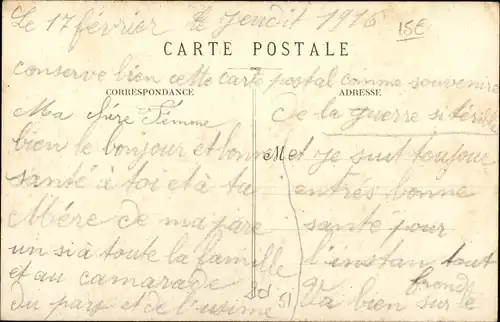 Le 17 février Le Jeudit 1916
15€
CARTE POSTALE
conserve bien cette carte postal comme souvenire
CORRESPONDANCE
ADRESSE
de la guerre si térible
Ma chére Fémme
bien le bonjour et bonne
santé à toi et à ta
Mére de ma pare
un si à toute la famille
et au camarade
du pays et de l'usime
M et je suit toujour
entrés bonne
santé pour
l'instan, tout
Va bien sur le
frondt
51